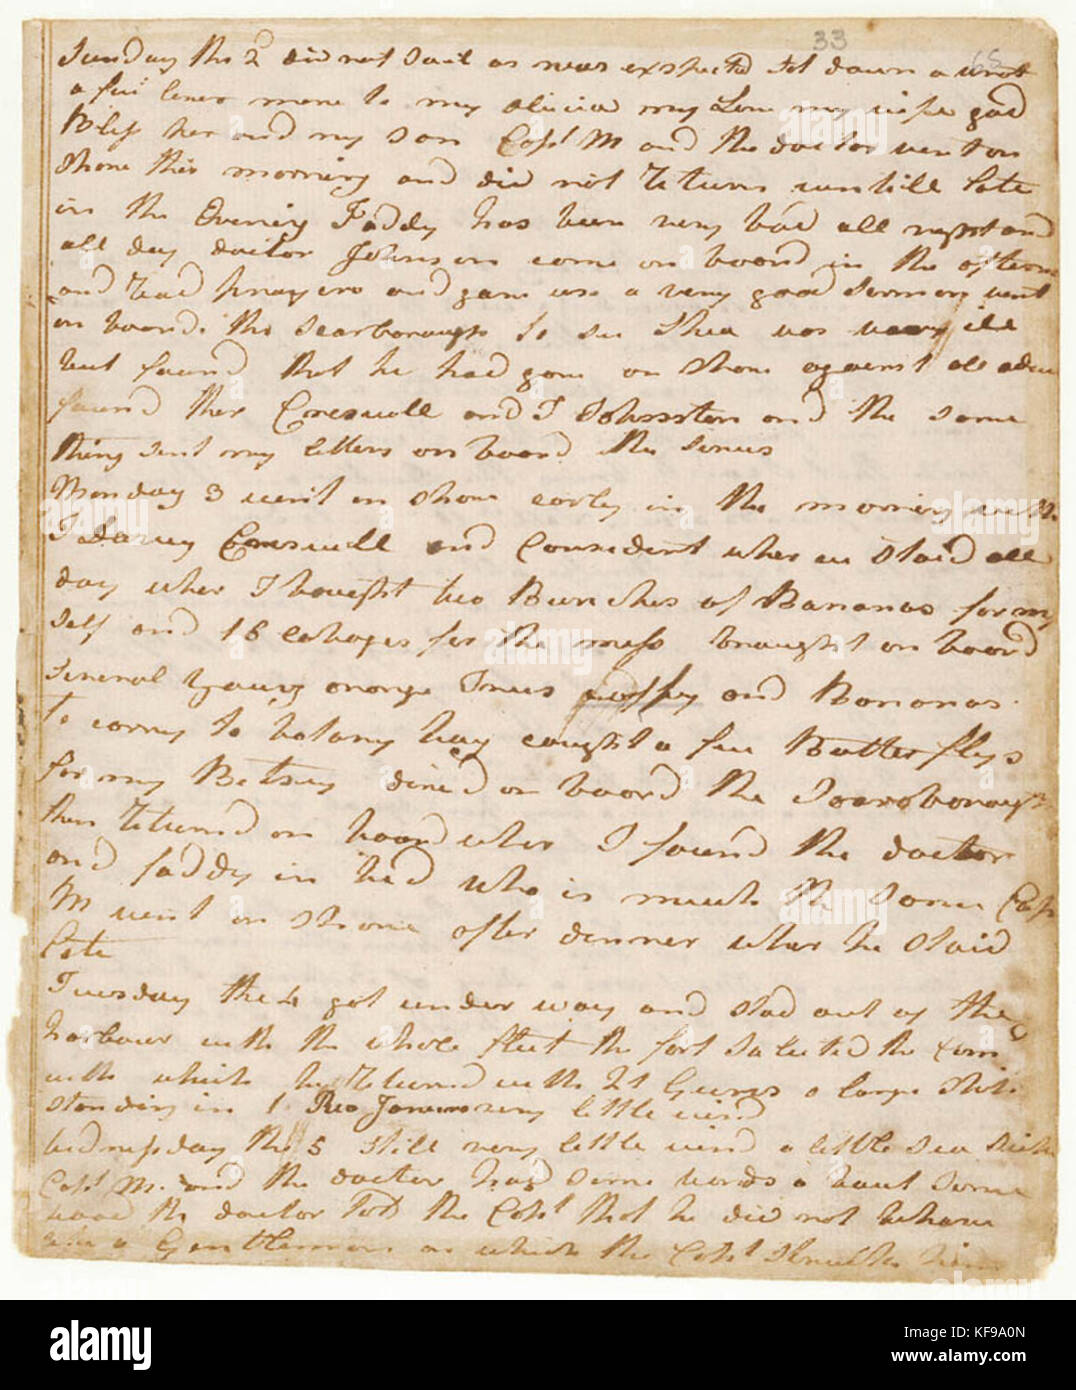 33
65
Sunday the 2d did not Sail as was expected Set down a wrot
a fiu lines more to my alicia my Love my wife god
Bless her and my son Capt M and the doctor went on
Shore this morning and did not Return untill late
in the Evening Faddy has been very bad all night and
all day doctor Johnson came on board in the aftern
and Read prayers and gave us a very good Sermon went
on board the Scarborough to see Shea was very ill
but found that he had gone on Shore against all advic
found ther Creswell and J Johnston and the same
thing sent my letters on board the Sirius
Monday 3 went on Shore early in the morning with
J Davey Creswell and Considen wher we Staid all
day wher I bought two Bunches of Bananas for my
self and 16 for the mess brought on board
several Young orange Trues and Bananas
to carry to botany bay caught a fiu Butter flys
for my Betsey dined on board the Scarborough
then Returnd on board wher I found the doctor
and faddy in bed who is much the same Capt
M went on Shore after dinner wher he Staid
late
Tuesday the 4 got under way and Stod out of the
harbour with the whole fleet the fort Saluted the Com
with which he Returned with 21 Guns a large Ship
standing in Rio Janeiro very little wind
wednessday the 5 still very little wind a little sea sick
Capt M. and the doctor had some words a bout some
the doctor told the Capt that he did not behave
like a Gentleman on which the Capt him
alamy
Image ID: KF9A0N
www.alamy.com